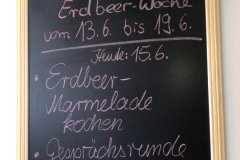 Erdbeer-Woche
vom 13.6. bis 19.6.
Heute: 15.6.
• Erdbeer-
Marmelade
kochen
• Gesprächsrunde